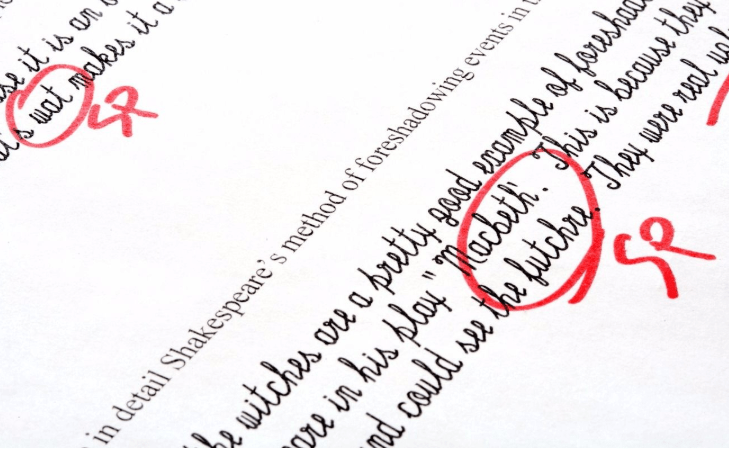 se it is an
s wat makes it a
SP
in detail Shakespeare's method of foreshadowing events in
he witches are a pretty good example of foreshad
are in his play "Macbeth". This is because they
nd could see the futchre. They were real
SP